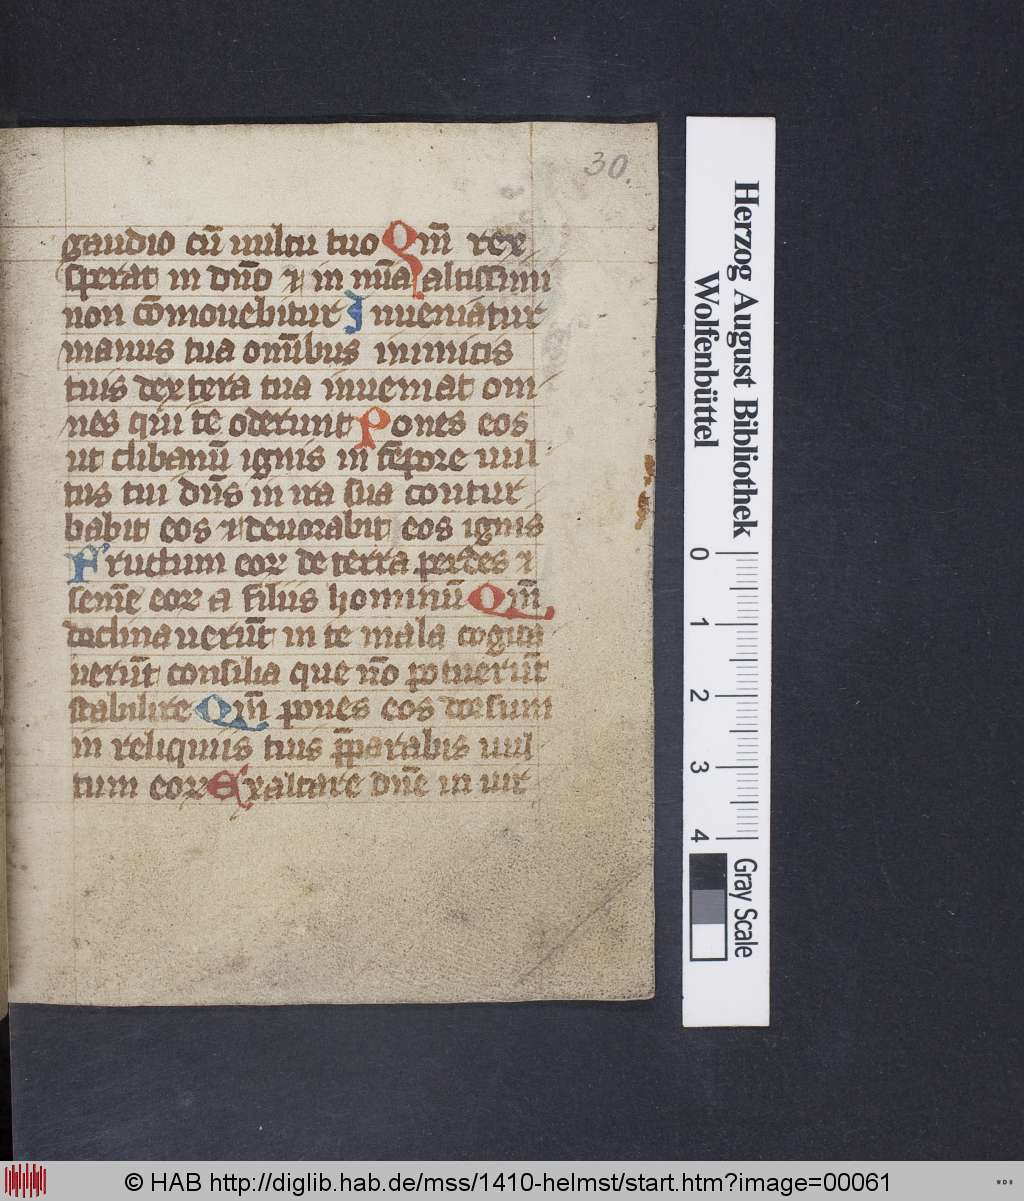 30.
gaudio cū uultu tuo Qm̄ rex
sperat in dn̄o ⁊ in mīa altissimi
non cōmouebitur Inueniatur
manus tua omībus inimicis
tuis dextera tua inueniat om
nes qui te oderunt Pones eos
ut clibanū ignis in tēpore uul
tus tui dn̄s in ira sua contur
babit eos ⁊ deuorabit eos ignis
Fructum eoꝝ de terra perdes ⁊
semē eoꝝ a filiis hominū Qm̄
declinauerūt in te mala cogita
uerūt consilia que nō potuerūt
stabilire Qm̄ pones eos dorsum
in reliquiis tuis p̄parabis uul
tum eoꝝ Exaltare dn̄e in uir
Herzog August Bibliothek
Wolfenbüttel
0 1 2 3 4
Gray Scale
© HAB http://diglib.hab.de/mss/1410-helmst/start.htm?image=00061